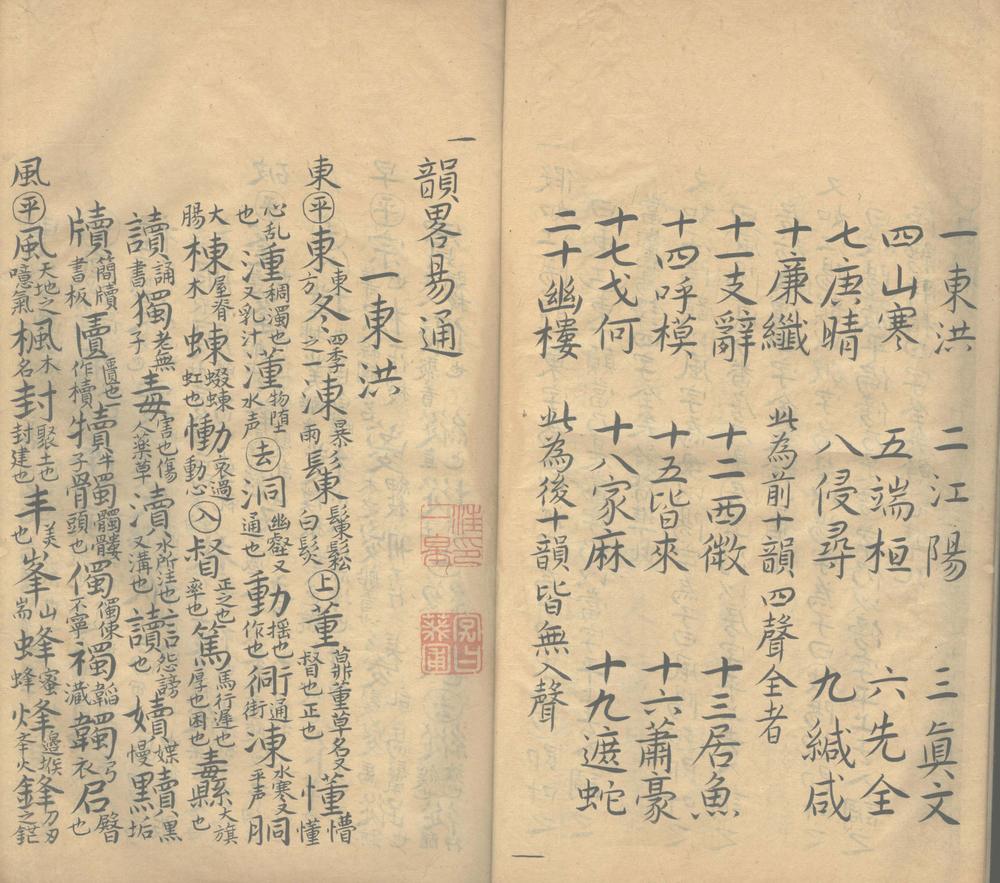 一東洪 二江陽 三眞文
四山寒 五端桓 六先全
七庚晴 八侵尋 九緘咸
十廉纖 此為前十韻四聲全者
十一支辭 十二西微 十三居魚
十四呼模 十五皆來 十六蕭豪
十七戈何 十八家麻 十九遮蛇
二十幽樓 此為後十韻皆無入聲
一
韻畧易通
一東洪
東平東東方冬四季之一涷暴雨鬆鬆鬆白髮上董鼎董草名又督也正也懂懵懂
心乱也湩重濁也又乳汁湩物堕水声去洞幽壑又通也動摇也作也衕通街凍水寒又平声胴
大腸棟屋脊木蝀蝃蝀虹也慟哀過動心入督正之也率也篤馬行遲也厚也困也纛大旗也
讀誦書獨老無子毒害也傷人藥草瀆水所注也又溝也讟怨謗也嬻媟慢黷黑垢
牘簡牘書板匵匱也作櫝犢牛子髑髑髏頭骨也儠不寧襡韜藏韣弓衣𡱂臀也
風平風天地之噫氣楓木名封聚土也封建也丰美也峯山耑蜂蜜蜂烽邊堠夆火鋒刀刃金之鋩